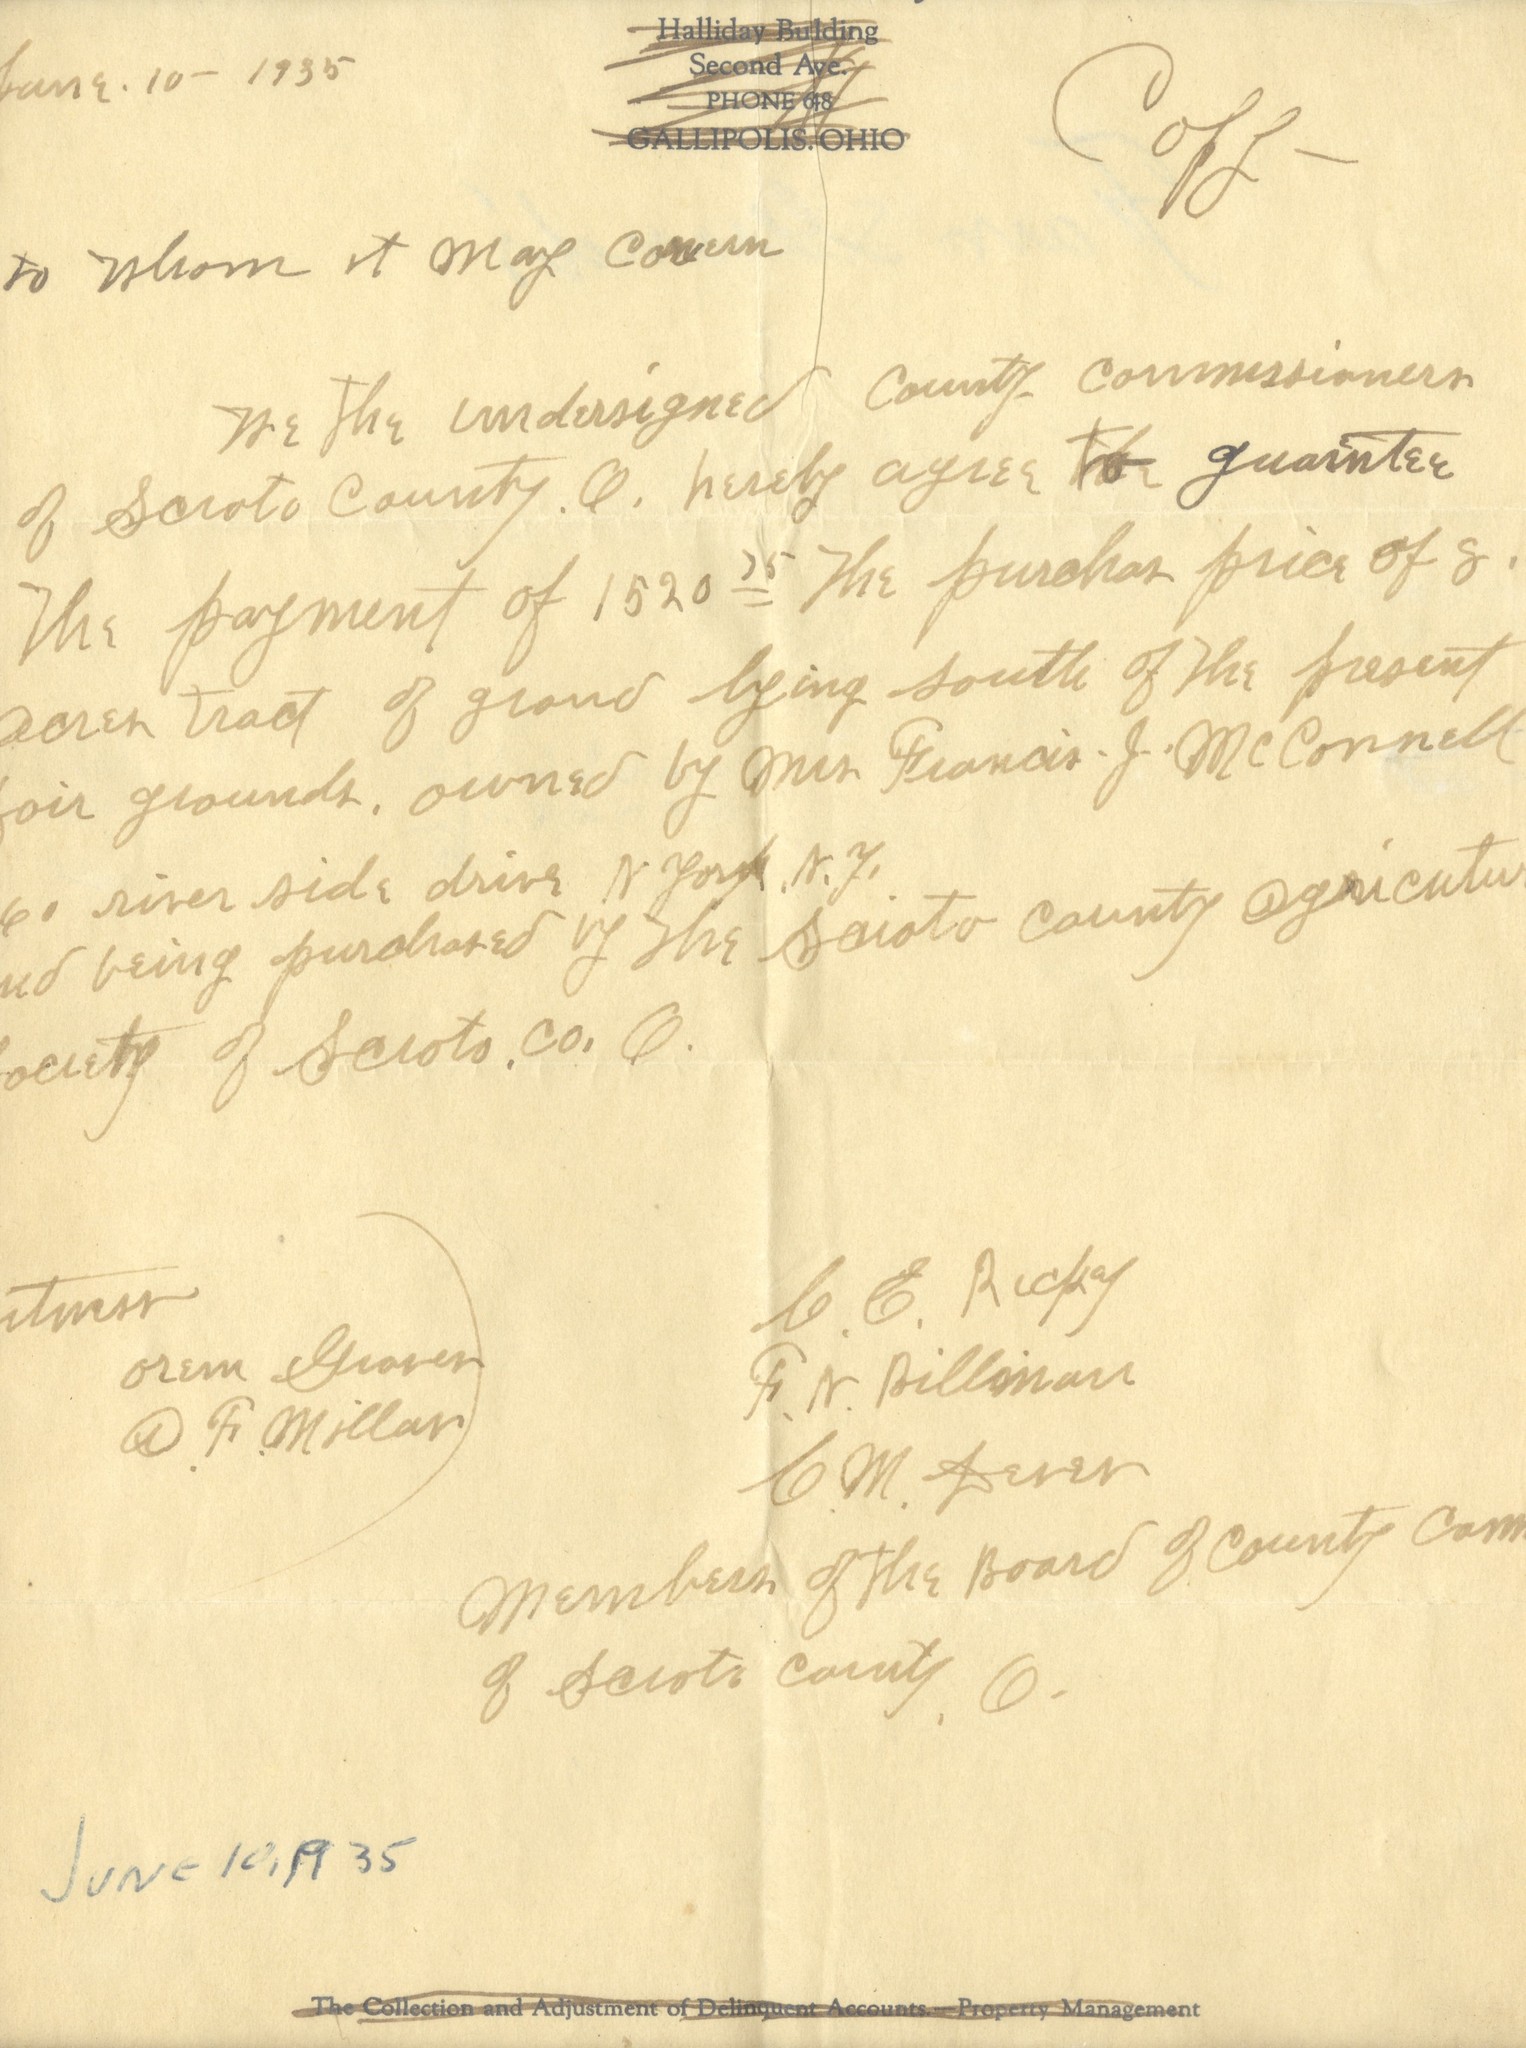 Halliday Building
Second Ave.
PHONE 648
GALLIPOLIS, OHIO
June. 10 - 1935
Copy -
to Whom it May Concern
We the undersigned County Commissioners
of Scioto County. O. hereby agree to guarntee
The payment of 1520 75 The purchas price of 8.
acres tract of ground lying south of the present
fair grounds. owned by Mrs Francis. J. McConnell
60 river side drive N York. N. Y.
and being purchased by the Scioto County Agricutur
Society of Scioto. Co. O.
itness
orem Graves
A. F. Millar
C. E. Rickey
F. N. Billman
C. M. Sever
Members of the Board of County Comm
of Scioto County. O.
JUNE 10, 1935
The Collection and Adjustment of Delinquent Accounts.—Property Management